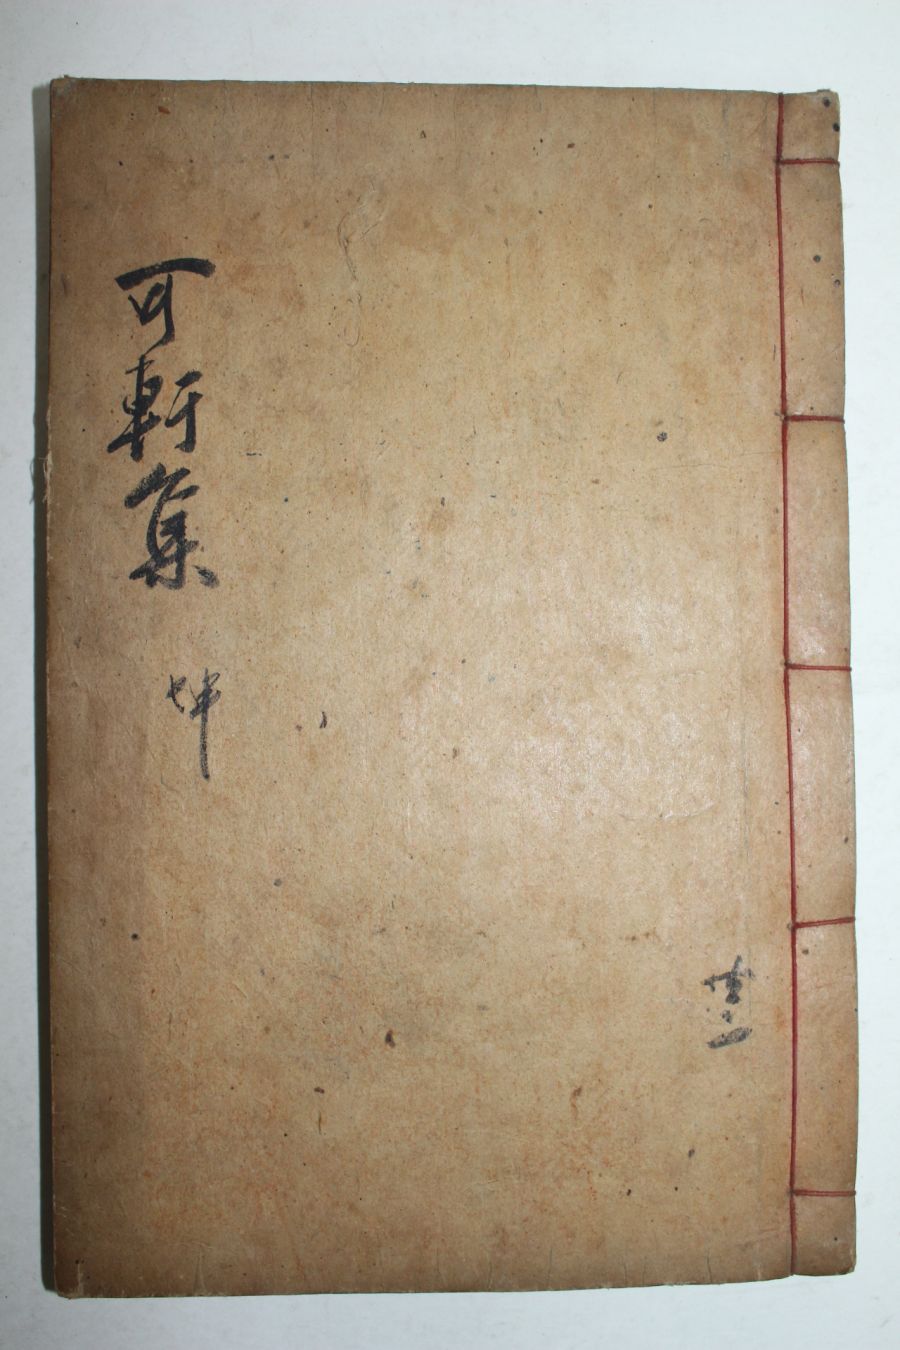 可軒集
坤